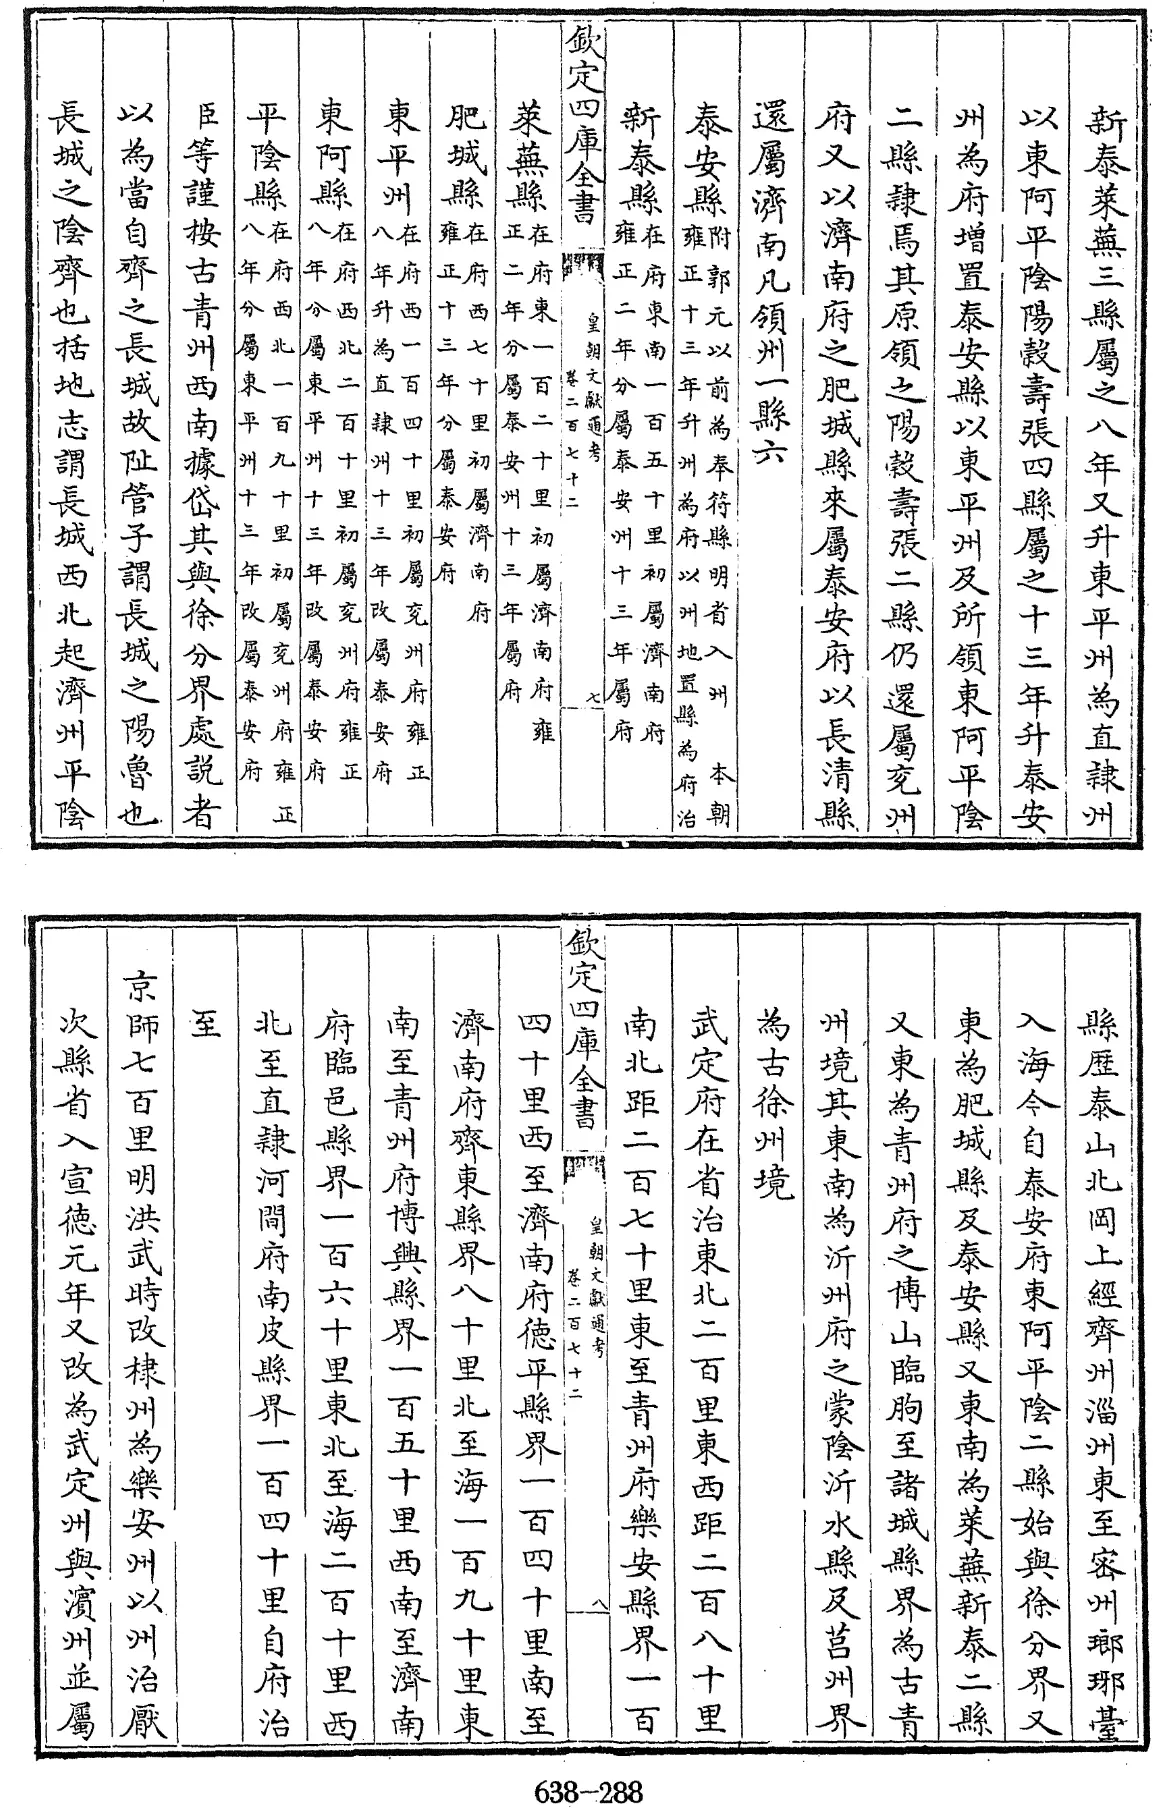 新泰萊蕪三縣屬之八年又升東平州為直隸州
以東阿平陰陽穀壽張四縣屬之十三年升泰安
州為府增置泰安縣以東平州及所領東阿平陰
二縣隸焉其原領之陽穀壽張二縣仍還屬兗州
府又以濟南府之肥城縣來屬泰安府以長清縣
還屬濟南凡領州一縣六
泰安縣附郭元以前為奉符縣明省入州 本朝
雍正十三年升州為府以州地置縣為府治
新泰縣在府東南一百五十里初屬濟南府
雍正二年分屬泰安州十三年屬府
欽定四庫全書
皇朝文獻通考
卷二百七十二
七
萊蕪縣在府東一百二十里初屬濟南府雍
正二年分屬泰安州十三年屬府
肥城縣在府西七十里初屬濟南府
雍正十三年分屬泰安府
東平州在府西一百四十里初屬兗州府雍正
八年升為直隸州十三年改屬泰安府
東阿縣在府西北二百十里初屬兗州府雍正
八年分屬東平州十三年改屬泰安府
平陰縣在府西北一百九十里初屬兗州府雍正
八年分屬東平州十三年改屬泰安府
臣等謹按古青州西南據岱其與徐分界處說者
以為當自齊之長城故阯管子謂長城之陽魯也
長城之陰齊也括地志謂長城西北起濟州平陰
縣歷泰山北岡上經齊州淄州東至密州瑯琊臺
入海今自泰安府東阿平陰二縣始與徐分界又
東為肥城縣及泰安縣又東南為萊蕪新泰二縣
又東為青州府之博山臨朐至諸城縣界為古青
州境其東南為沂州府之蒙陰沂水縣及莒州界
為古徐州境
武定府在省治東北二百里東西距二百八十里
南北距二百七十里東至青州府樂安縣界一百
欽定四庫全書
皇朝文獻通考
卷二百七十二
八
四十里西至濟南府德平縣界一百四十里南至
濟南府齊東縣界八十里北至海一百九十里東
南至青州府博興縣界一百五十里西南至濟南
府臨邑縣界一百六十里東北至海二百十里西
北至直隸河間府南皮縣界一百四十里自府治
至
京師七百里明洪武時改棣州為樂安州以州治厭
次縣省入宣德元年又改為武定州與濱州並屬
638-288